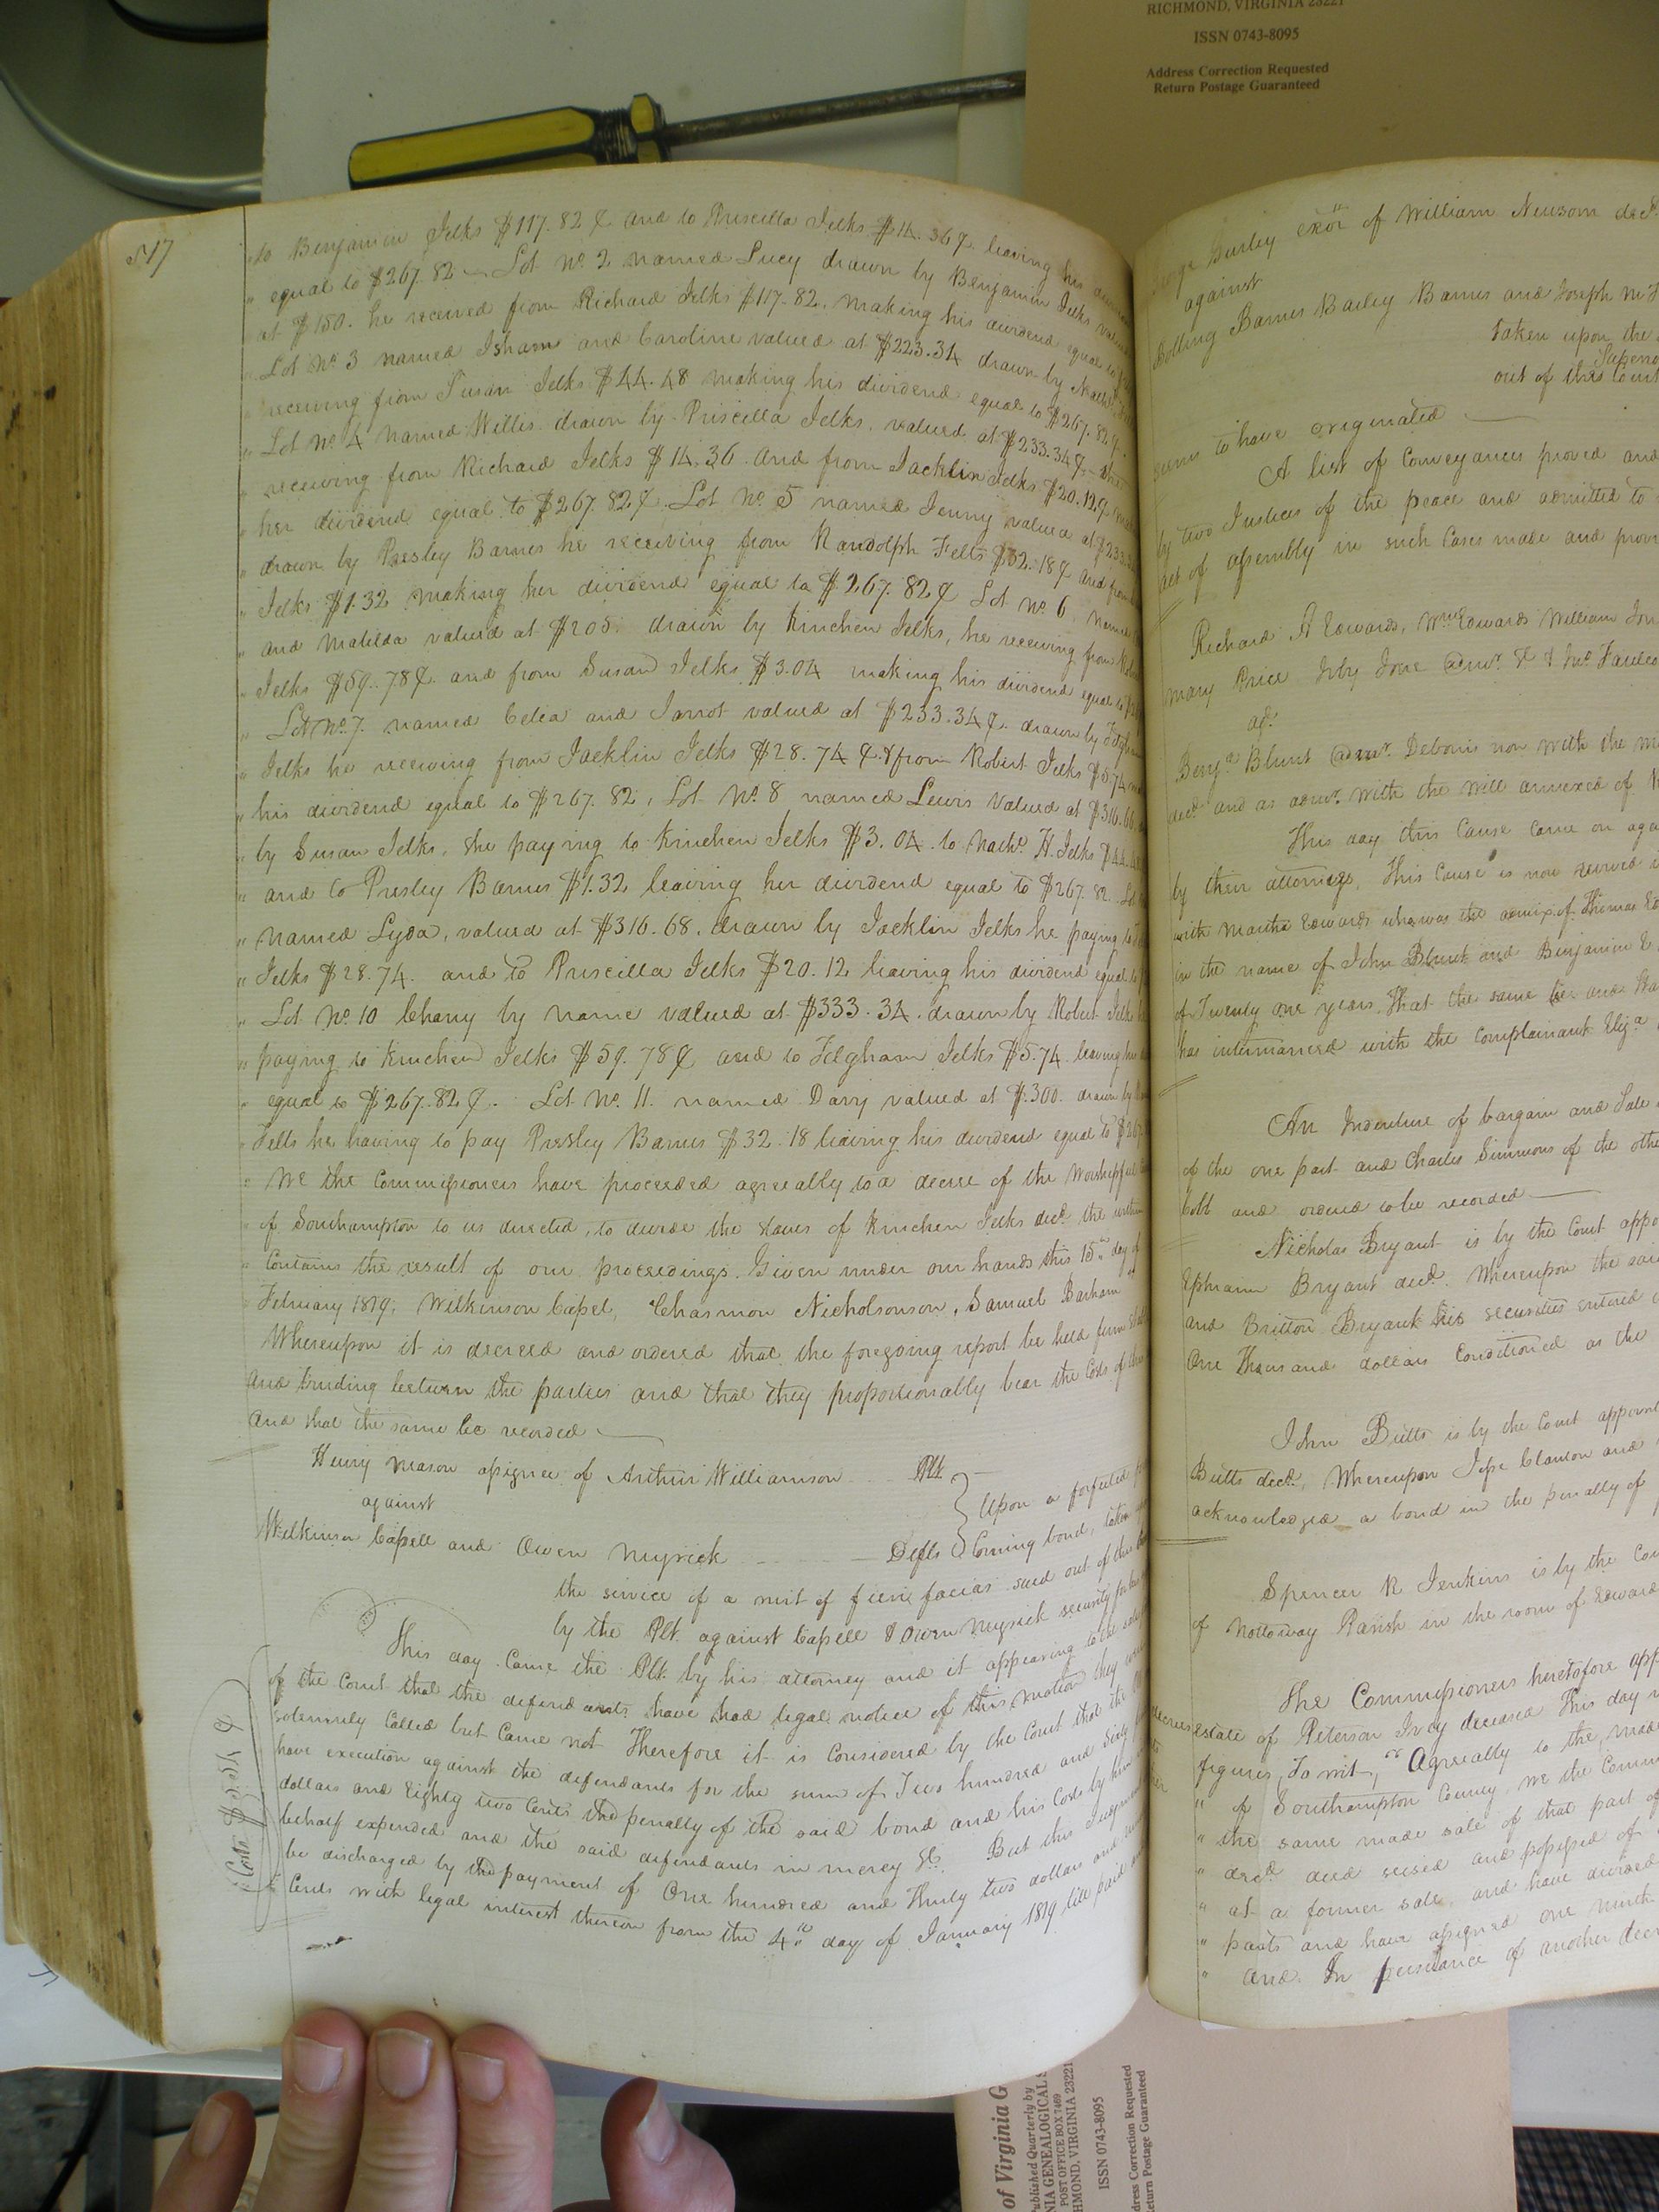 RICHMOND, VIRGINIA 23221
ISSN 0743-8095
Address Correction Requested
Return Postage Guaranteed
517
to Benjamin Jelks $117.82 ¢ and to Priscilla Jelks $14.36 ¢ leaving his
" equal to $267.82 — Lot No. 2 named Lucy drawn by Benjamin Jelks
at $150. he received from Richard Jelks $117.82. making his dividend equal to
" Lot No. 3 named Isham and Caroline valued at $223.34 drawn by
" receiving from Susan Jelks $44.48 making his dividend equal to $267.82 ¢.
" Lot No. 4 named Willis drawn by Priscilla Jelks, valued at $233.34 ¢ - she
" receiving from Richard Jelks $14.36 and from Jacklin Jelks $20.12 ¢
" her dividend equal to $267.82 ¢. Lot No. 5 named Jenny valued at
" drawn by Presley Barnes he receiving from Randolph Felts $32.18 ¢ and from
" Jelks $1.32 making her dividend equal to $267.82 ¢ Lot No. 6 named
" and Matilda valued at $205. drawn by Kinchen Jelks, he receiving from
" Jelks $59.78 ¢. and from Susan Jelks $3.04 making his dividend equal to
" Lot No. 7. named Celia and Jarrot valued at $233.34 ¢. drawn by
" Jelks he receiving from Jacklin Jelks $28.74 ¢. & from Robert Jelks $5.74
" his dividend equal to $267.82, Lot No. 8 named Lewis valued at $316.66
" by Susan Jelks, she paying to Kinchen Jelks $3.04. to Nathl. H. Jelks
" and to Presley Barnes $1.32 leaving her dividend equal to $267.82.
" named Lyda, valued at $316.68, drawn by Jacklin Jelks he paying to
" Jelks $28.74. and to Priscilla Jelks $20.12 leaving his dividend equal to
" Lot No. 10 Chany by name valued at $333.34. drawn by Robert Jelks
" paying to Kinchen Jelks $59.78 ¢ and to Filgham Jelks $5.74. leaving his
" equal to $267.82 ¢. Lot No. 11. named Davy valued at $300. drawn by
" Felts he having to pay Presley Barnes $32.18 leaving his dividend equal to
" We the Commissioners have proceeded agreeally to a decree of the Worshipful
" of Southampton to us directed, to divide the slaves of Kinchen Jelks decd. the within
" Contains the result of our proceedings. Given under our hands this 15th day of
" February 1819, Wilkinson Capel, Charmon Nicholsonson, Samuel Barham "
Whereupon it is decreed and ordered that the foregoing report be held firm
and binding between the parties and that they proportionally bear the Costs of
and that the same be recorded —
Henry Mason assignee of Arthur Williamson Plt.
against
Wilkinson Capell and Owen Myrick Defts
Upon a forfeited
Coming bond, taken
the service of a writ of fieri facias sued out of
by the Plt. against Capell & Owen Myrick security
This day Came the Plt. by his attorney and it appearing to the
of the Court that the defendants have had legal notice of this motion they were
solemnly Called but Came not Therefore it is Considered by the Court that the
have execution against the defendants for the sum of Two hundred and Sixty
dollars and Eighty two Cents the penalty of the said bond and his Costs by him
behalf expended and the said defendants in mercy &c. But this Judgment
be discharged by the payment of One hundred and Thirty two dollars and
Cents with legal interest thereon from the 4th day of January 1819 till paid
Costs $5.54 ¢
George Gurley exor of William Newsom decd
against
Bolling Barnes Bailey Barnes and Joseph
taken upon the
out of this Court
seems to have originated —
A list of Conveyances proved and
by two Justices of the peace and admitted to
act of assembly in such Cases made and
Richard A Edwards, Wm Edwards William
Mary Price
agt.
Benja. Blunt admr. Debonis non with the
decd. and as admr. with the will annexed of
This day this Cause Came on
by their attornies, This Cause is now revived
with Martha Edwards who was the admix. of Thomas
in the name of John Blunt and Benjamin E
of Twenty one years, That the same
has intermarried with the Complainant Eliza
An Indenture of bargain and Sale
of the one part and Charles Simmons of the
Cobb and ordered to be recorded —
Nicholas Bryant is by the Court
Ephraim Bryant decd. Whereupon the said
and Britton Bryant his securities entered
One Thousand dollars Conditioned as the
John Butts is by the Court
Butts decd, Whereupon Jesse Clanton and
acknowledged a bond in the penalty of
Spencer R Jenkins is by the
of Nottoway Parish in the room of Edward
The Commissioners heretofore
estate of Peterson Ivey deceased This day
figures, To wit, " Agreeally to the
" of Southampton County, we the
" the same made sale of that part of
" decd. died seised and possessed of
" at a former sale, and have divided
" parts and have assigned one
" and. In persuance of another
of Virginia
Published Quarterly by
POST OFFICE BOX 7469
RICHMOND, VIRGINIA 23221
ISSN 0743-8095
Address Correction Requested
Return Postage Guaranteed